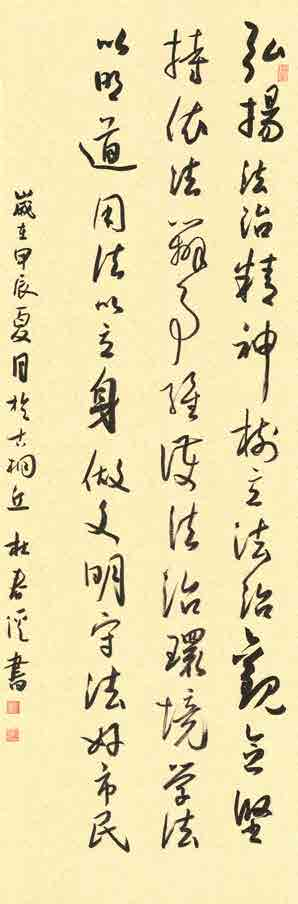 弘揚法治精神樹立法治觀念堅
持依法辦事維護法治環境学法
以明道用法以立身做文明守法好市民
歲在甲辰夏月於古桐丘杜春溪書